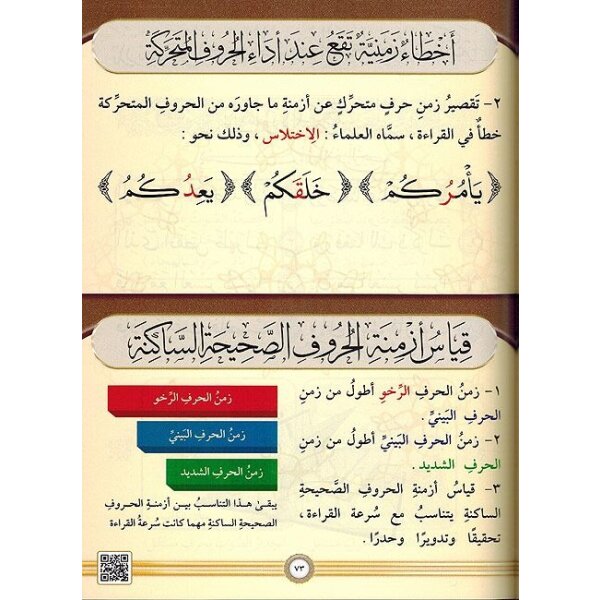 أَخْطَاءٌ زَمَنِيَّةٌ تَقَعُ عِنْدَ أَدَاءِ الْحُرُوفِ الْمُتَحَرِّكَةِ
٢- تَقصيرُ زمنِ حرفٍ متحركٍ عن أزمنةِ ما جاورَه من الحروفِ المتحركة
خطأٌ في القراءة ، سمَّاه العلماءُ : الِاختلاس ، وذلك نحو :
﴿ يَأْمُرُكُمْ ﴾ ﴿ خَلَقَكُمْ ﴾ ﴿ يَعِدُكُمُ ﴾
قِيَاسُ أَزْمِنَةِ الْحُرُوفِ الصَّحِيحَةِ السَّاكِنَةِ
١- زمنُ الحرفِ الرِّخوِ أطولُ من زمنِ
الحرفِ البَينيِّ .
٢- زمنُ الحرفِ البَينيِّ أطولُ من زمنِ
الحرفِ الشديد .
٣- قياسُ أزمنةِ الحروفِ الصَّحيحةِ
الساكنةِ يتناسبُ مع سُرعة القراءة ،
تحقيقًا وتدويرًا وحدرًا .
زمنُ الحرفِ الرِّخو
زمنُ الحرفِ البَينيِّ
زمنُ الحرفِ الشديد
يبقىٰ هذا التناسبُ بين أزمنةِ الحروفِ
الصحيحةِ الساكنةِ مهما كانت سُرعةُ القراءة
٧٣